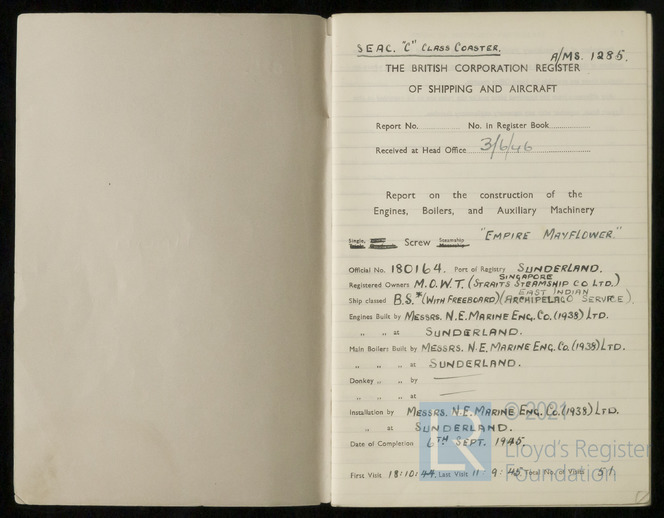 SEAC. "C" CLASS COASTER.
A/MS. 1285.
THE BRITISH CORPORATION REGISTER
OF SHIPPING AND AIRCRAFT
Report No. No. in Register Book
Received at Head Office 3/6/46
Report on the construction of the
Engines, Boilers, and Auxiliary Machinery
Single, Screw Steamship "EMPIRE MAYFLOWER."
Official No. 180164. Port of Registry SUNDERLAND.
SINGAPORE
Registered Owners M.O.W.T. (STRAITS STEAMSHIP CO LTD.)
EAST INDIAN
Ship classed B.S.* (WITH FREEBOARD) (ARCHIPELAGO SERVICE).
Engines Built by MESSRS. N.E. MARINE ENG. Co. (1938) LTD.
" " at SUNDERLAND.
Main Boilers Built by MESSRS. N.E. MARINE ENG. Co. (1938) LTD.
" " " at SUNDERLAND.
Donkey " " by
" " at
Installation by MESSRS. N.E. MARINE ENG. Co. (1938) LTD.
" at SUNDERLAND.
Date of Completion 6TH SEPT. 1945.
First Visit 18:10:44. Last Visit 11 9: 45 Total No. of Visits 51
© 2021
LR
Lloyd's Register
Foundation